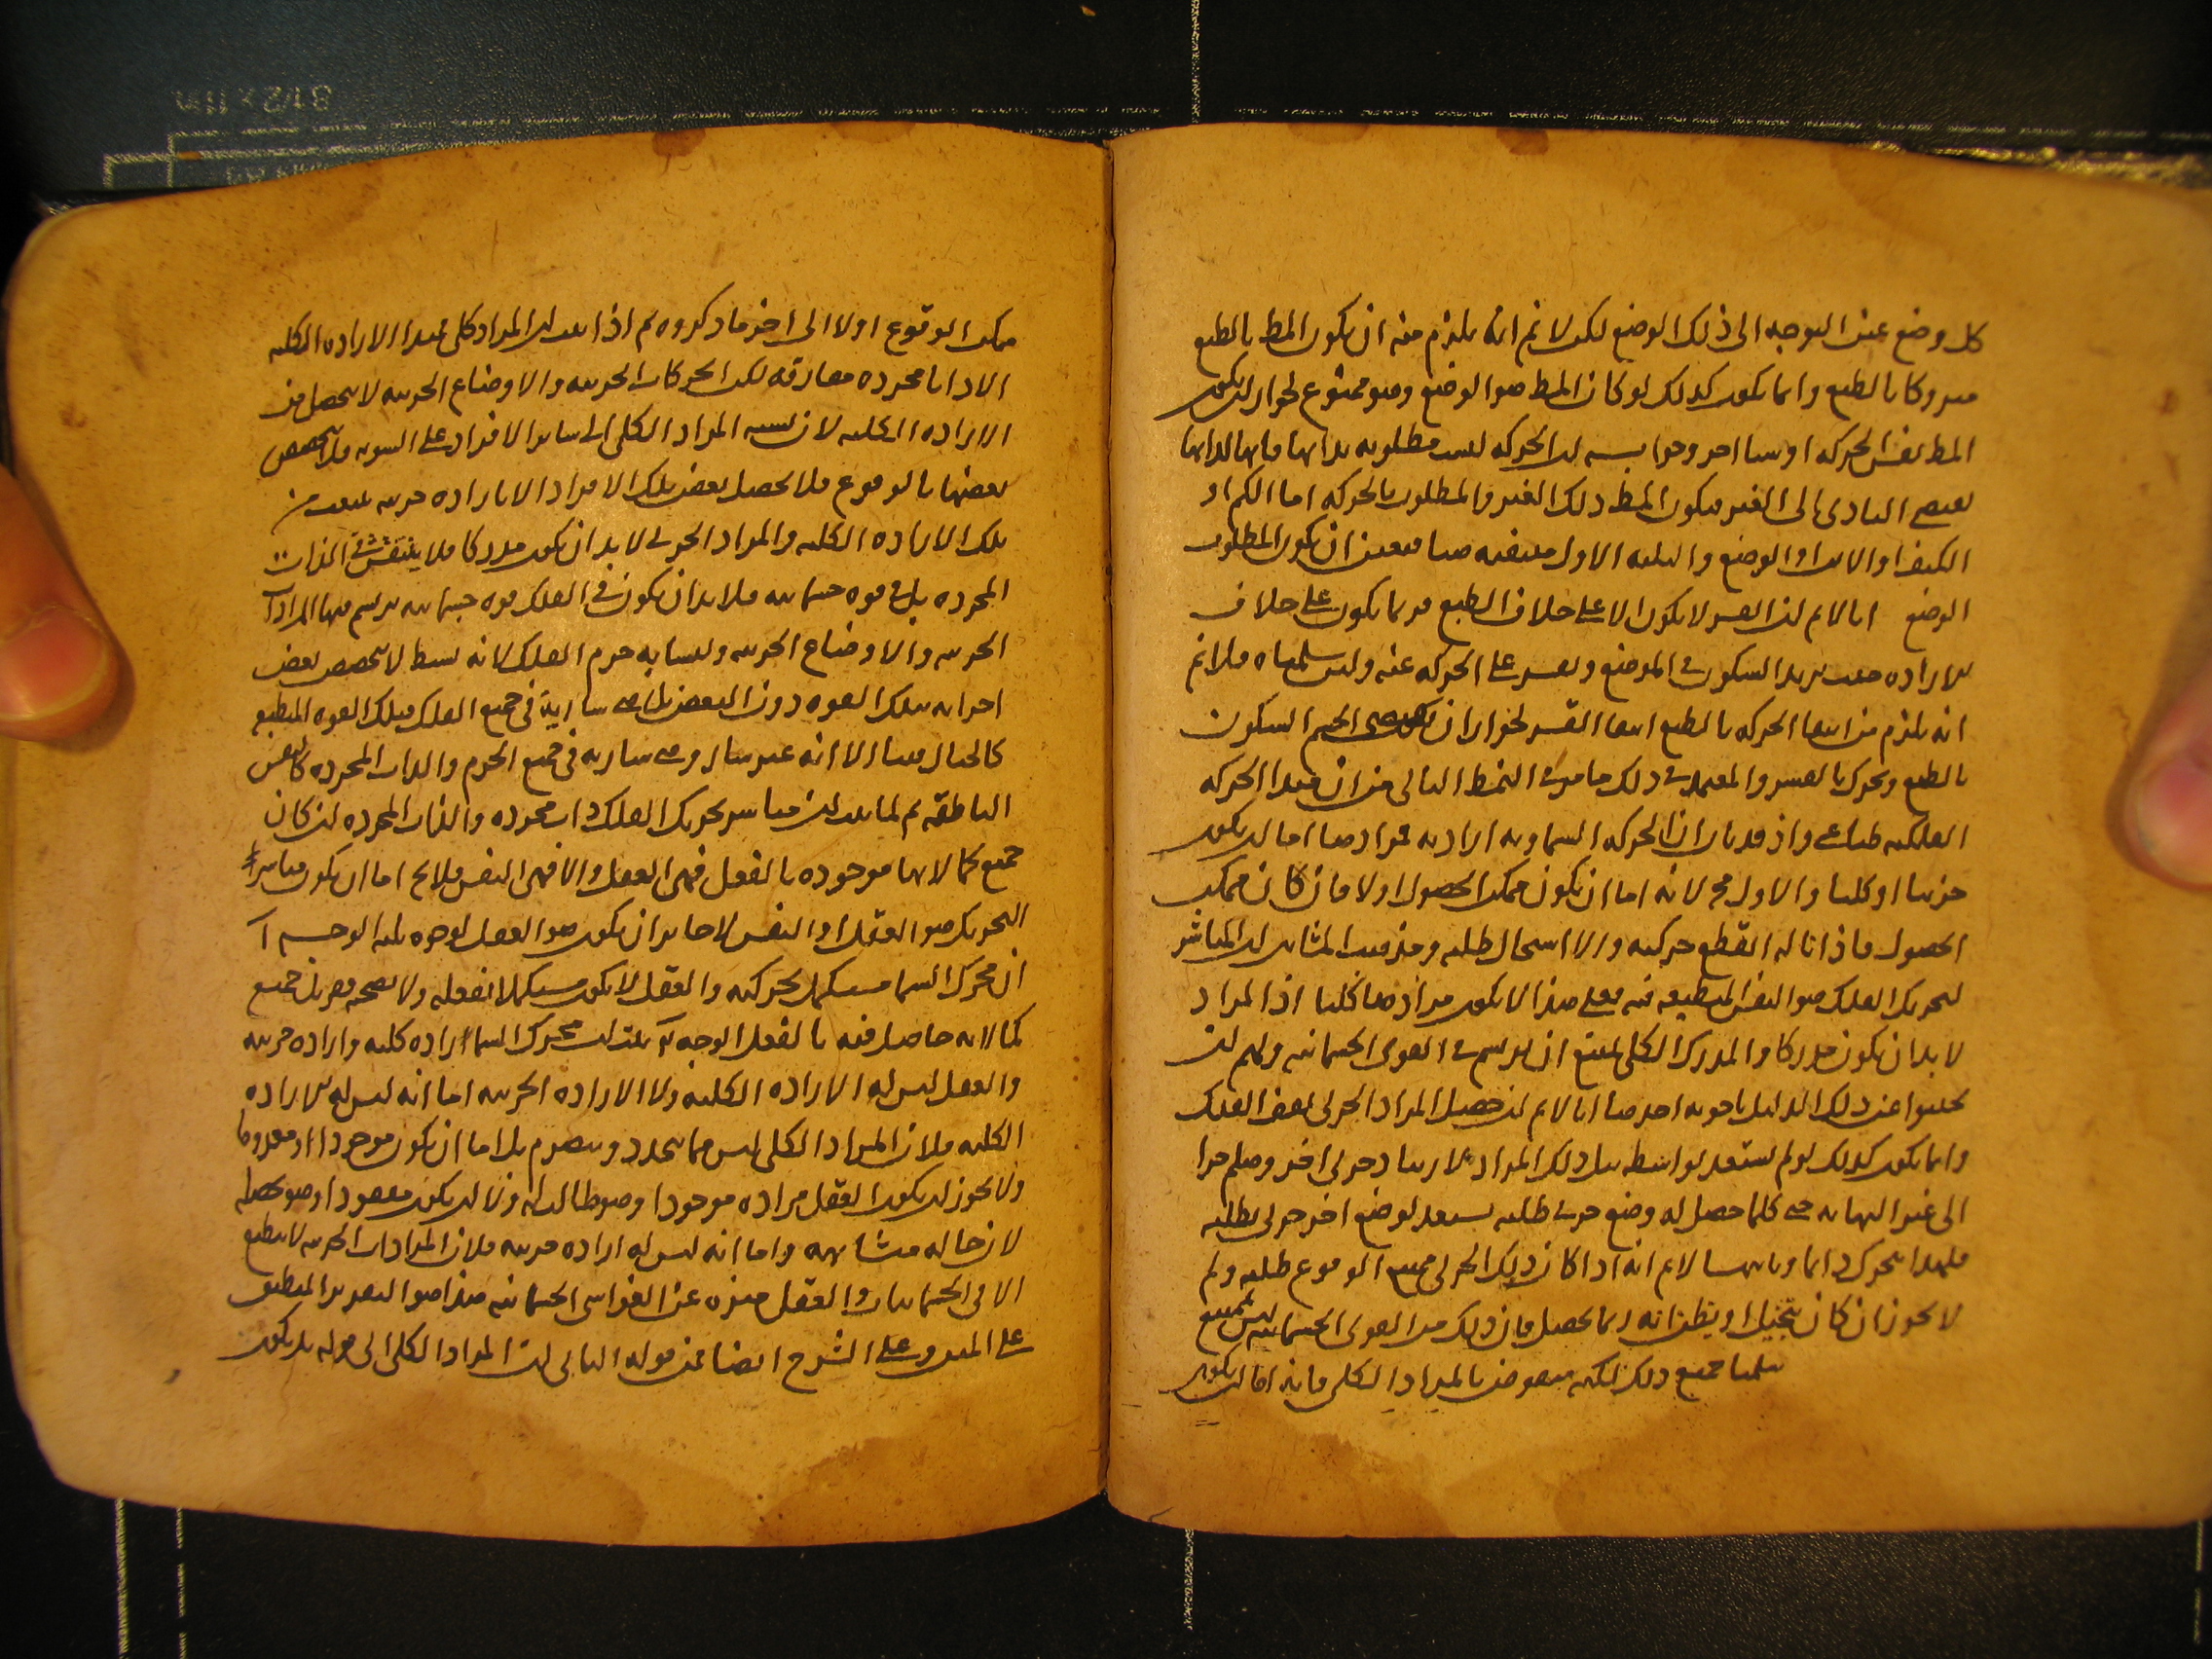 كل وضع عين التوجه الى ذلك الوضع لكن لا نم انه يلزم منه ان يكون المط بالطبع
متروكا بالطبع وانما يكون كذلك لو كان المط هو الوضع وهو ممنوع لجواز ان يكون
المط نفس الحركه او شيا اخر وجوابه ان الحركه ليست مطلوبه بذاتها فانها لذاتها
تقتضى التادى الى الغير فيكون المط ذلك الغير والمطلوب بالحركه اما الكم او
الكيف او الاين او الوضع والثلثه الاول منتفيه هنا فتعين ان يكون المطلوب
الوضع انا لا نم ان القسر لا يكون الا على خلاف الطبع فربما يكون على خلاف
الاراده حيث يريد السكون فى الموضع ويقسر على الحركه عنه ولئن سلمناه فلا نم
انه يلزم من انتفا الحركه بالطبع انتفا القسر لجواز ان يقتضى الجسم السكون
بالطبع ويحرك بالقسر والمعتمد فى ذلك ما مر فى النمط الثانى من ان مبدا الحركه
الفلكيه طباعى واذ قد بان ان الحركه السماويه اراديه فمرادها اما ان يكون
جزييا او كليا والاول مح لانه اما ان يكون ممكن الحصول او لا فان كان ممكن
الحصول فاذا ناله انقطع حركته والا استحال طلبه ومذهب المشائين ان المباشر
لتحريك الفلك هو النفس المنطبعه فيه فعلى هذا لا يكون مرادها كليا اذ المراد
لا بد ان يكون مدركا والمدرك الكلى يمتنع ان يرتسم فى القوى الجسمانيه ولهم ان
يجيبوا عن ذلك الدليل باجوبه احدها انا لا نم ان حصل المراد الجزئى يقف الفلك
وانما يكون كذلك لو لم يستعد بواسطه نيل ذلك المراد لارتياد جزئى اخر وهلم جرا
الى غير النهايه حتى كلما حصل له وضع جزئى طلبه يستعد لوضع اخر جزئى يطلبه
فلهذا يتحرك دايما وثانيها لا نم انه اذا كان ذلك الجزئى ممتنع الوقوع طلبه ولم
لا يجوز ان كان يتخيل او يظن انه ربما يحصل فان ذلك من القوى الجسمانيه ليس بممتنع
سلمنا جميع ذلك لكنه منقوض بالمراد الكلى فانه اما ان يكون
ممكن الوقوع او لا الى اخر ما ذكروه ثم اذا ثبت ان المراد كلى فمبدا الاراده الكليه
الا ذاتا مجرده مفارقه لكن الحركات الجزييه والاوضاع الجزييه لا تحصل من
الاراده الكليه لان نسبه المراد الكلى الى ساير الافراد على السويه فلا تخصص
بعضها بالوقوع فلا يحصل بعض تلك الافراد الا باراده جزييه تنبعث من
تلك الاراده الكليه والمراد الجزئى لا بد ان يكون مدركا فلا ينتقش فى الذات
المجرده بل فى قوه جسمانيه فلا بد ان يكون فى الفلك قوه جسمانيه يرتسم فيها المرادات
الجزييه والاوضاع الجزييه ولتشابه جرم الفلك لانه بسيط لا يتخصص بعض
اجزائه بتلك القوه دون البعض بل هى ساريه فى جميع الفلك فتلك القوه المنطبعه
كالخيال فينا الا انه غير سار وهى ساريه فى جميع الجرم والذات المجرده كالنفس
الناطقه ثم لما ثبت ان مباشر تحريك الفلك ذات مجرده والذات المجرده ان كان
جميع كمالاتها موجوده بالفعل فهى العقل والا فهى النفس فلا يخ اما ان يكون مباشر
التحريك هو العقل او النفس لا جايز ان يكون هو العقل لوجوه ثلثه الوجه آ
ان محرك السما مستكمل بحركته والعقل لا يكون مستكملا بفعله ولا نصحه فعر بل جميع
كمالاته حاصل فيه بالفعل الوجه ب ثبت ان محرك السما اراده كليه واراده جزييه
والعقل ليس له الاراده الكليه ولا الاراده الجزييه اما انه ليس له الاراده
الكليه فلان المراد الكلى ليس مما يتجدد ويتصرم بل اما ان يكون موجودا او معدوما
ولا يجوز ان يكون العقل مراده موجودا وهو طالب له ولا ان يكون مفقودا وهو يحصله
لان حاله متشابهه واما انه ليس له اراده جزييه فلان المرادات الجزييه لا تنطبع
الا فى الجسمانيات والعقل منزه عن الغواشى الجسمانيه هذا هو التقرير المنطبق
على المتن وعلى الشرح ايضا فمن قوله الثانى ان المراد الكلى الى قوله بل يكون